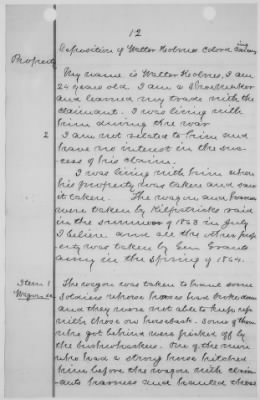 12
Deposition of Walter Holmes Colord
Property
My name is Walter Holmes, I am
24 years old. I am a Shoemaker
and learned my trade with the
claimant. I was living with
him during the war
2 I am not related to him and
have no interest in the suc-
cess of his claim.
I was living with him when
his property was taken and saw
it taken. The wagon and harness
were taken by Kilpatricks raid
in the summer of 1863 in July
I believe and all the other prop-
erty was taken by Gen Grants
army in the spring of 1864.
Item 1 The wagon was taken to haul some
Wagon &c soldiers whose horses had broke down
and they were not able to keep up
with those on horseback. Some of them
who got behind were picked off by
the bushwhackers. One of the men
who had a strong horse hitched
him before the wagon with claim-
ants harness and hauled these